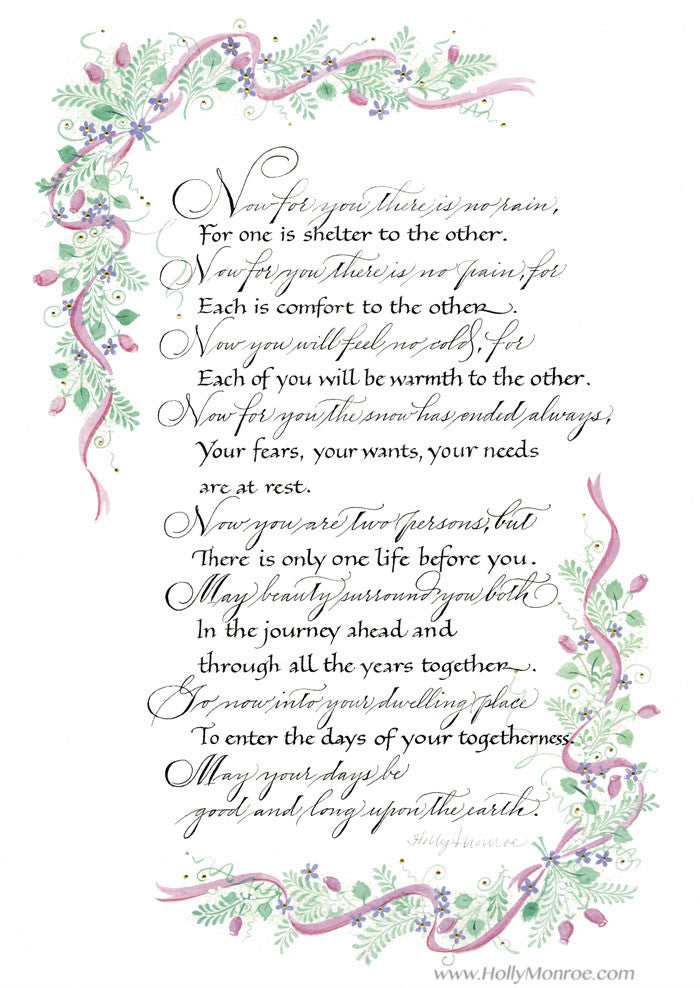 Now for you there is no rain,
For one is shelter to the other.
Now for you there is no pain, for
Each is comfort to the other.
Now you will feel no cold, for
Each of you will be warmth to the other.
Now for you the snow has ended always,
Your fears, your wants, your needs
are at rest.
Now you are two persons, but
There is only one life before you.
May beauty surround you both
In the journey ahead and
through all the years together.
Go now into your dwelling place
To enter the days of your togetherness.
May your days be
good and long upon the earth.
Holly Monroe
www.HollyMonroe.com